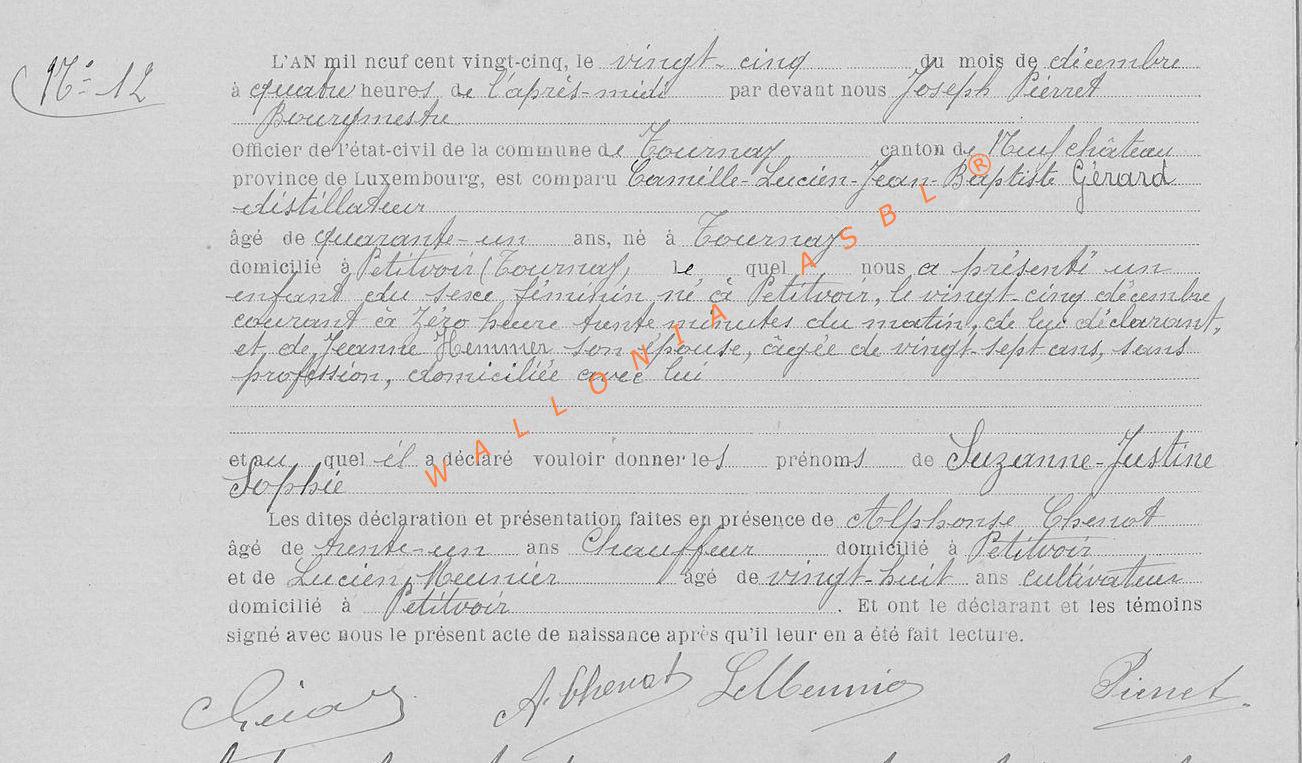 N° 12
L'AN mil neuf cent vingt-cinq, le vingt-cinq du mois de décembre
à quatre heures de l'après-midi par devant nous Joseph Pierret
Bourgmestre
Officier de l'état-civil de la commune de Tournay canton de Neufchâteau
province de Luxembourg, est comparu Camille-Lucien-Jean-Baptiste Gérard
distillateur
âgé de quarante-un ans, né à Tournay
domicilié à Petitvoir (Tournay) lequel nous a présenté un
enfant du sexe féminin né à Petitvoir, le vingt-cinq décembre
courant à zéro heure trente minutes du matin, de lui déclarant,
et de Jeanne Hemmer son épouse, âgée de vingt-sept ans, sans
profession, domiciliée avec lui
et au quel il a déclaré vouloir donner les prénoms de Suzanne-Justine
Sophie
Les dites déclaration et présentation faites en présence de Alphonse Chenot
âgé de trente-un ans Chauffeur domicilié à Petitvoir
et de Lucien Meunier âgé de vingt-huit ans cultivateur
domicilié à Petitvoir. Et ont le déclarant et les témoins
signé avec nous le présent acte de naissance après qu'il leur en a été fait lecture.
A. Chenot L Meunier Pierret
WALLONIA ASBL®